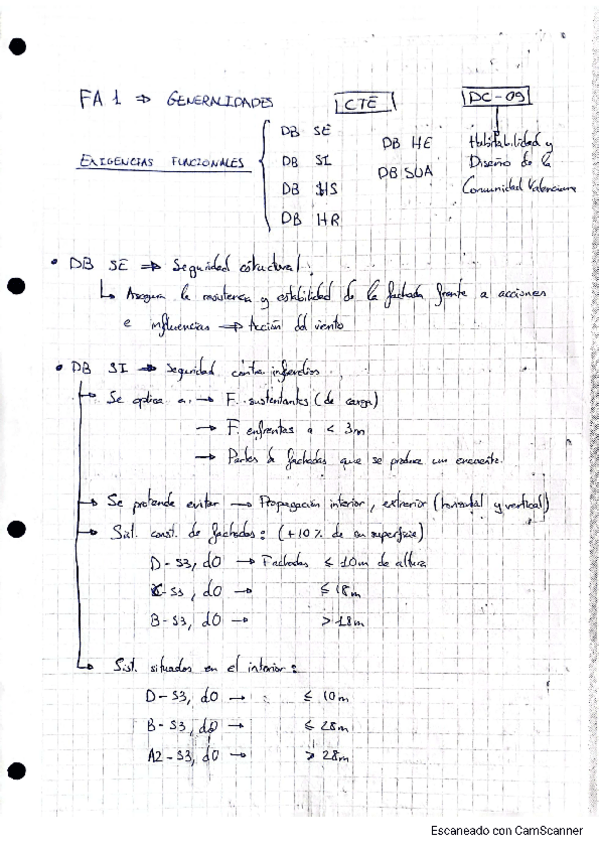 FA 1 ⇒ GENERALIDADES
CTE
DC-09
EXIGENCIAS FUNCIONALES
DB SE
DB SI
DB HS
DB HR
DB HE
DB SUA
Habitabilidad y
Diseño de la
Comunidad Valenciana
• DB SE ⇒ Seguridad estructural.
↳ Asegura la resistencia y estabilidad de la fachada frente a acciones
e influencias → Acción del viento
• DB SI → Seguridad contra incendios.
→ Se aplica a: → F. sustentantes (de carga)
→ F. enfrentas a < 3m
→ Partes de fachadas que se produce un encuentro.
→ Se pretende evitar → Propagación interior, exterior (horizontal y vertical)
→ Sist. const. de fachadas: (+10% de su superficie)
D-S3, d0 → Fachadas ≤ 10m de altura
C-S3, d0 → ≤ 18m
B-S3, d0 → > 18m
↳ Sist. situados en el interior:
D-S3, d0 → ≤ 10m
B-S3, d0 → ≤ 28m
A2-S3, d0 → > 28m
Escaneado con CamScanner